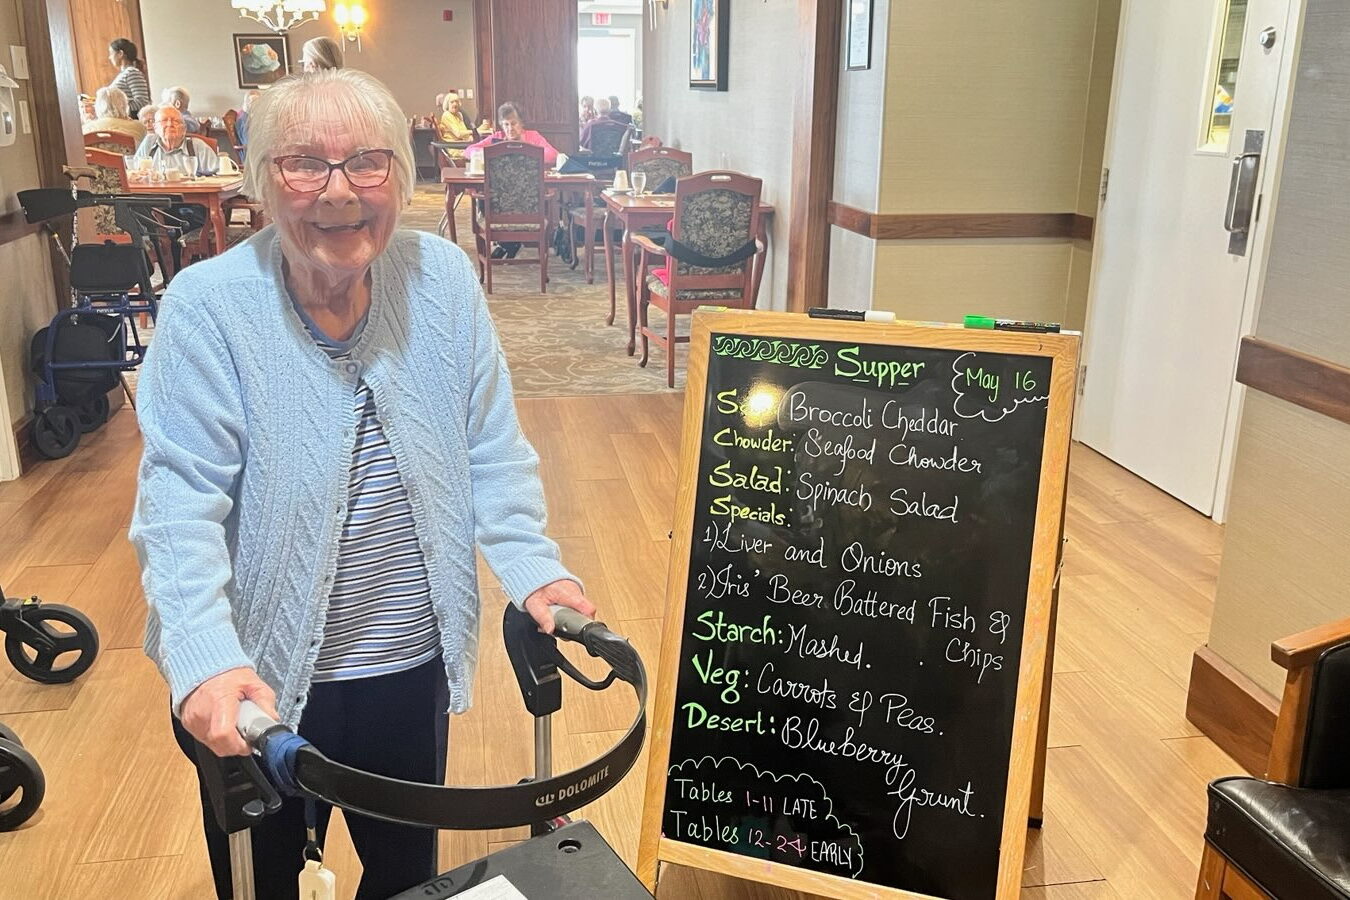 Supper
May 16
Broccoli Cheddar
Chowder: Seafood Chowder
Salad: Spinach Salad
Specials:
1) Liver and Onions
2) Iris' Beer Battered Fish &
Chips
Starch: Mashed.
Veg: Carrots & Peas.
Desert: Blueberry
Grunt.
Tables 1-11 LATE
Tables 12-24 EARLY
DOLOMITE